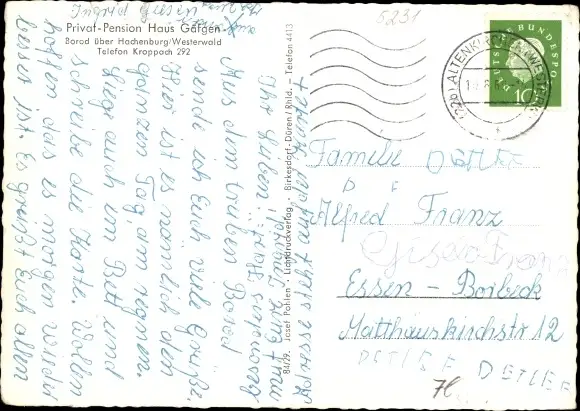 Privat-Pension Haus Gafgen
Borod über Hachenburg/Westerwald
Telefon Kroppach 292
Ihr Lieben!
Aus dem trüben Borod
sende ich Euch viele Grüße.
Hier ist es nämlich den
ganzen Tag am regnen.
Liege auch im Bett und
schreibe die Karte. Wollen
hoffen das es morgen wieder
besser ist. Es grüßt Euch allen
Adresse steht auf der Karte
84/29. Josef Pohlen · Lichtdruckverlag · Birkesdorf-Düren/Rhld. – Telefon 4413
5231
(22b) ALTENKIRCHEN (WESTERW)
DEUTSCHE BUNDESPOST
10
Familie DETLEF
D F
Alfred Franz
Essen - Borbeck
Matthäuskirchstr 12
DETLEF DETLEF
76